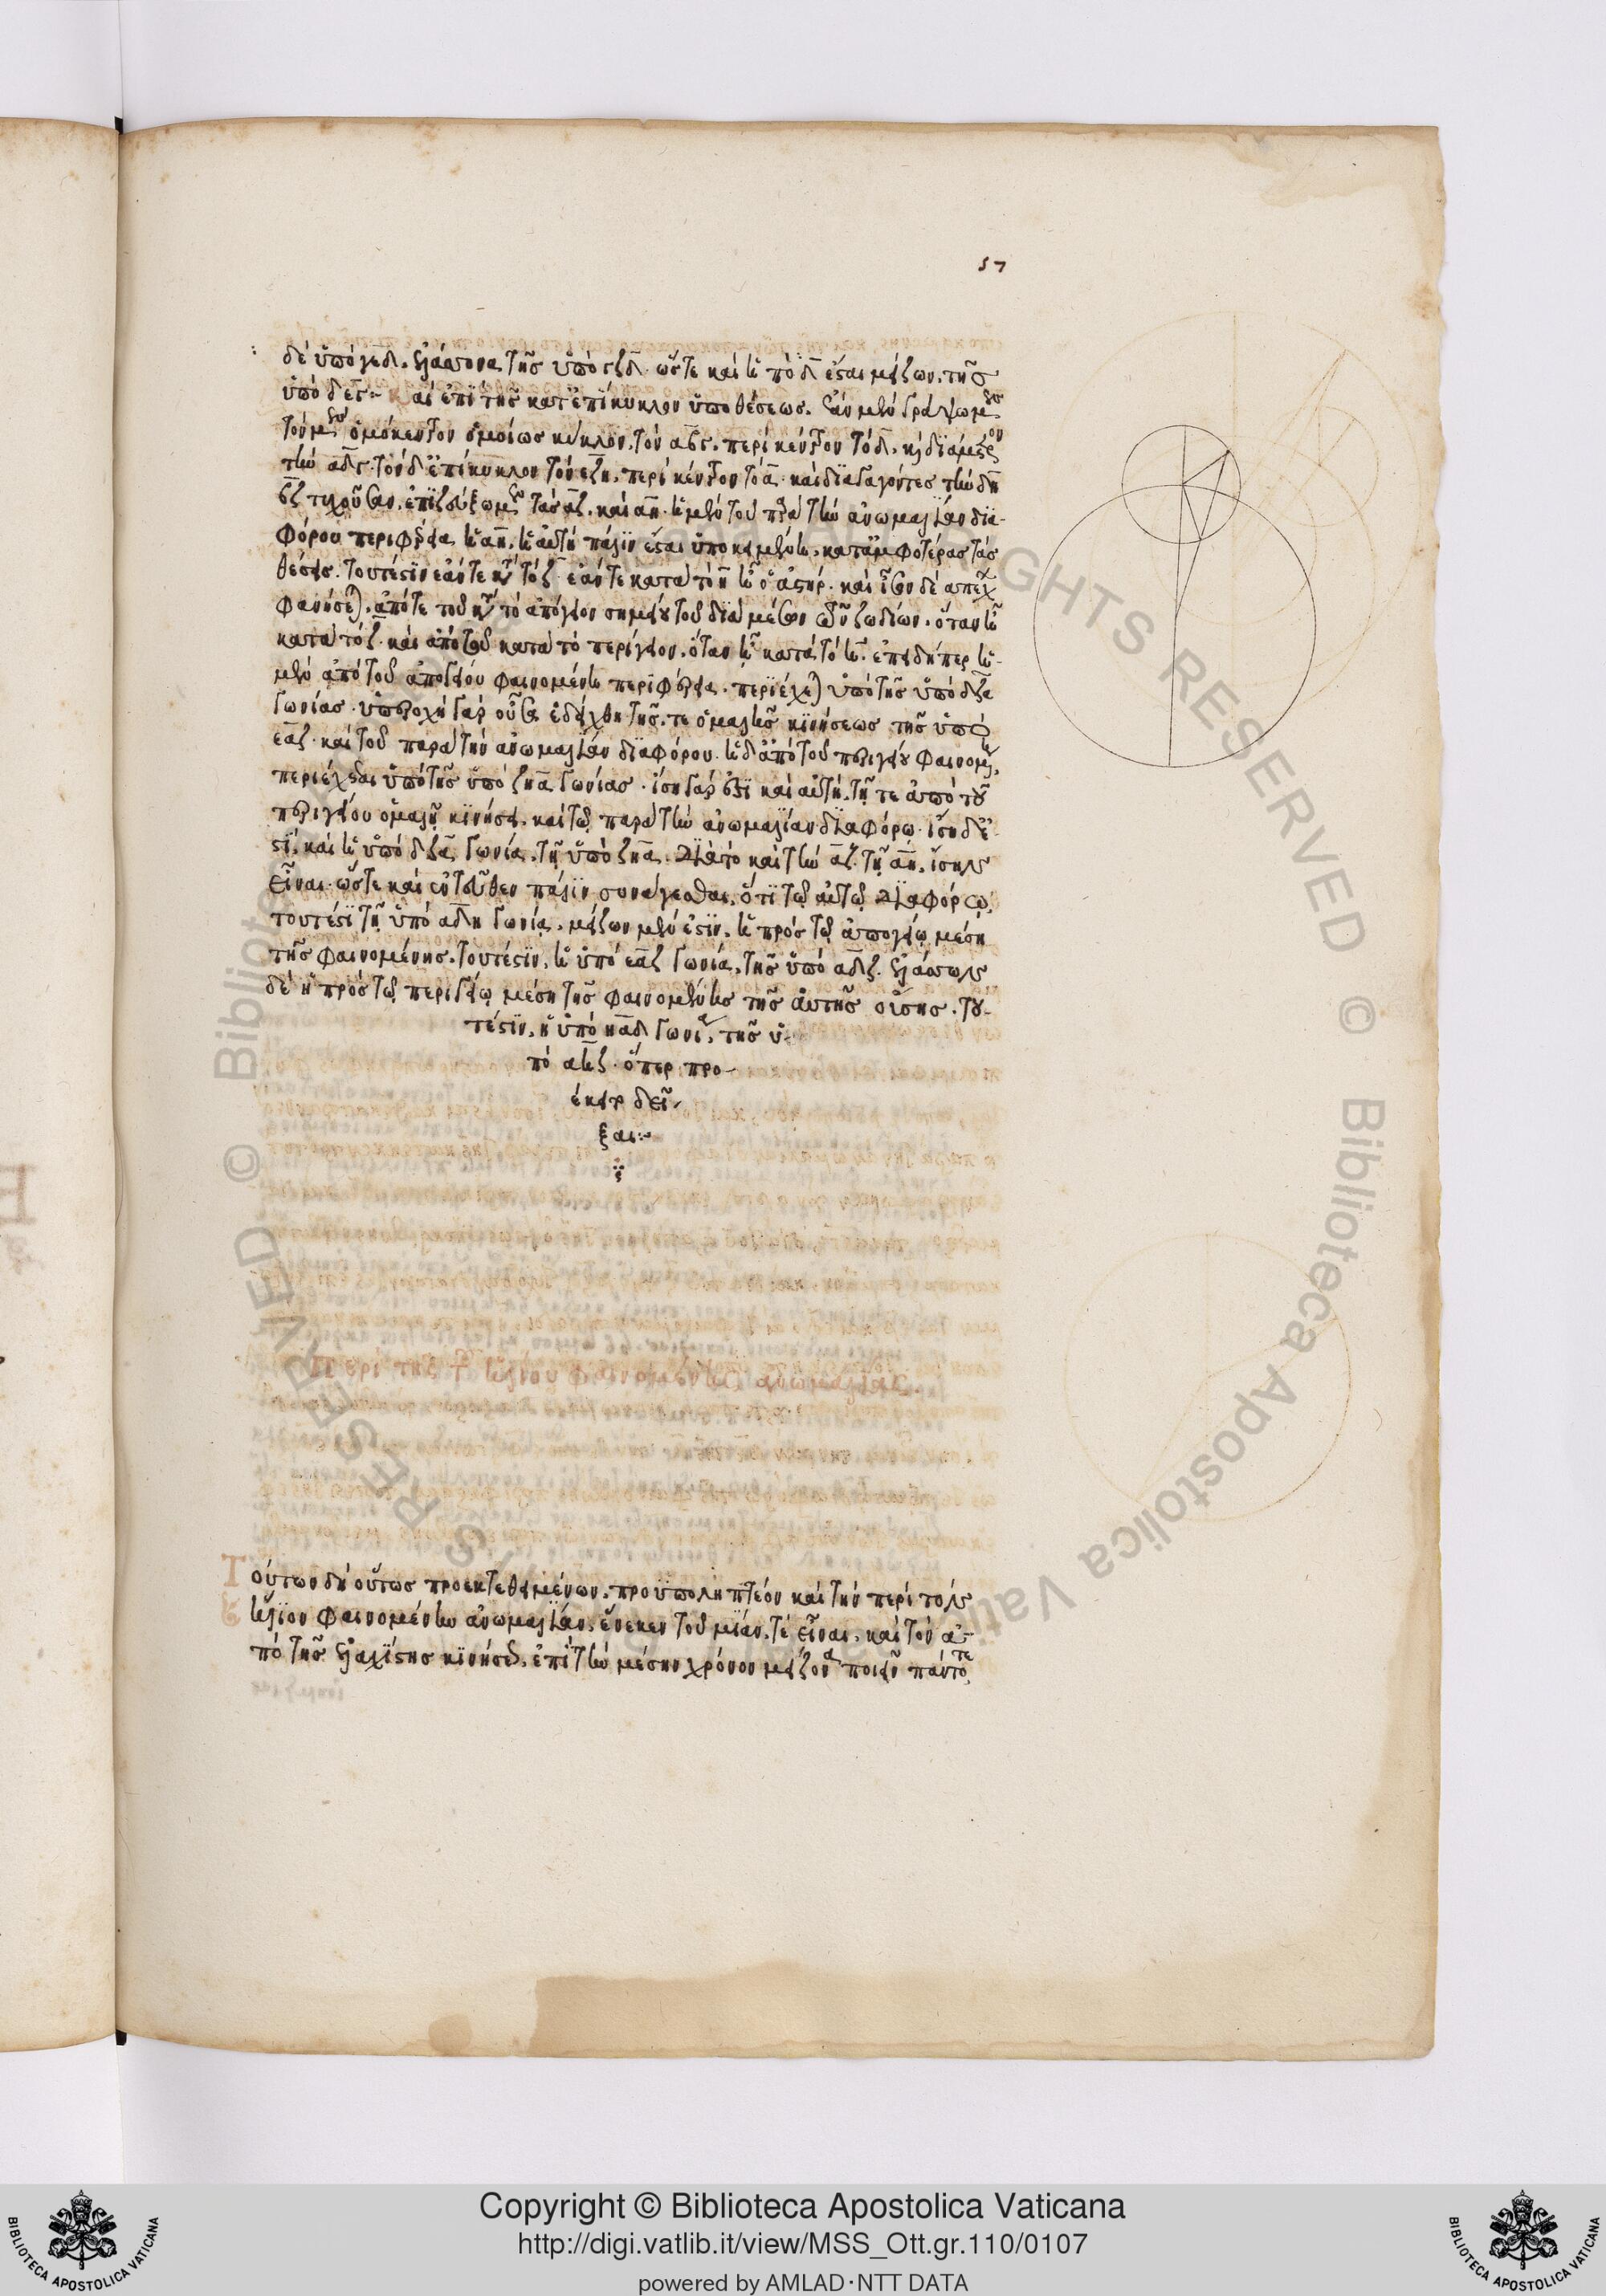 57
δὲ ὑπὸ γεδ. ἐλάττονα τῆς ὑπὸ εζδ. ὥστε καὶ ἡ ὑπὸ
ὑπὸ δες :~ Καὶ ἐπὶ τῆς κατ' ἐπίκυκλον ὑποθέσεως. ἐὰν μὲν γράψωμεν
τὸν μὲν ὁμόκεντρον ὁμοίως κύκλον. τὸν αβς. περὶ κέντρον τὸ δ. κ διάμετρον
τὴν αδς. τὸν δ' ἐπίκυκλον τὸν εζη. περὶ κέντρον τὸ α. καὶ διαγαγόντες τὴν δη
βζ τυχοῦσαν. ἐπιζεύξωμεν τὰς αζ. καὶ αη. ἡ μὲν τοῦ παρὰ τὴν ἀνωμαλίαν δια-
φόρου περιφέρεια ἡ αη. ἡ αὐτὴ πάλιν ἔσται ὑποκειμένη. κατ' ἀμφοτέρας τὰς
θέσεις. τουτέστιν ἐάν τε κατὰ τὸ ζ. ἐάν τε κατὰ τὸ η ᾖ ὁ ἀστήρ. καὶ ἴσον δὲ ἀπέχων
φανήσεται. ἀπό τε τοῦ κατὰ τὸ ἀπόγειον σημείου τοῦ διὰ μέσων τῶν ζωδίων. ὅταν ᾖ
κατὰ τὸ ζ. καὶ ἀπὸ τοῦ κατὰ τὸ περίγειον. ὅταν ᾖ κατὰ τὸ η. ἐπειδήπερ ἡ
μὲν ἀπὸ τοῦ ἀπογείου φαινομένη περιφέρεια. περιέχεται ὑπὸ τῆς ὑπὸ δζα
γωνίας. ὑπεροχὴ γὰρ οὖσα ἐδείχθη τῆς. τε ὁμαλῆς κινήσεως τῆς ὑπὸ
εαζ. καὶ τοῦ παρὰ τὴν ἀνωμαλίαν διαφόρου. ἡ δ' ἀπὸ τοῦ περιγείου φαινομένη
περιέχεται ὑπὸ τῆς ὑπὸ ζηα γωνίας. ἴση γάρ ἐστι καὶ αὐτὴ. τῇ τε ἀπὸ τοῦ
περιγείου ὁμαλῇ κινήσει. καὶ τῷ παρὰ τὴν ἀνωμαλίαν διαφόρῳ. ἴση δέ ἐ-
στι. καὶ ἡ ὑπὸ δζα γωνία. τῇ ὑπὸ ζηα. διὰ τὸ καὶ τὴν αζ. τῇ αη. ἴσην
εἶναι. ὥστε καὶ ἐντεῦθεν πάλιν συνάγεσθαι. ὅτι τῷ αὐτῷ διαφόρῳ.
τουτέστι τῇ ὑπὸ αδη γωνίᾳ. μείζων μέν ἐστιν. ἡ πρὸς τῷ ἀπογείῳ μέση
τῆς φαινομένης. τουτέστιν. ἡ ὑπὸ εαζ γωνία. τῆς ὑπὸ αδζ. ἐλάττων
δὲ ἡ πρὸς τῷ περιγείῳ μέση τῆς φαινομένης τῆς αὐτῆς οὔσης. του-
τέστιν. ἡ ὑπὸ ηαδ γωνία. τῆς ὑ-
πὸ αηζ. ὅπερ προ-
έκειτο δεῖ-
ξαι :~
Περὶ τῆς τοῦ ἡλίου φαινομένης ἀνωμαλίας.
Τούτων δὴ οὕτως προεκτεθειμένων. προϋποληπτέον καὶ τὴν περὶ τὸν
ἥλιον φαινομένην ἀνωμαλίαν. ἕνεκεν τοῦ μίαν. τέ εἶναι. καὶ τὸν ἀ-
πὸ τῆς ἐλαχίστης κινήσεως. ἐπὶ τὴν μέσην χρόνον μείζονα ποιεῖν πάντοτε
Copyright © Biblioteca Apostolica Vaticana
http://digi.vatlib.it/view/MSS_Ott.gr.110/0107
powered by AMLAD·NTT DATA